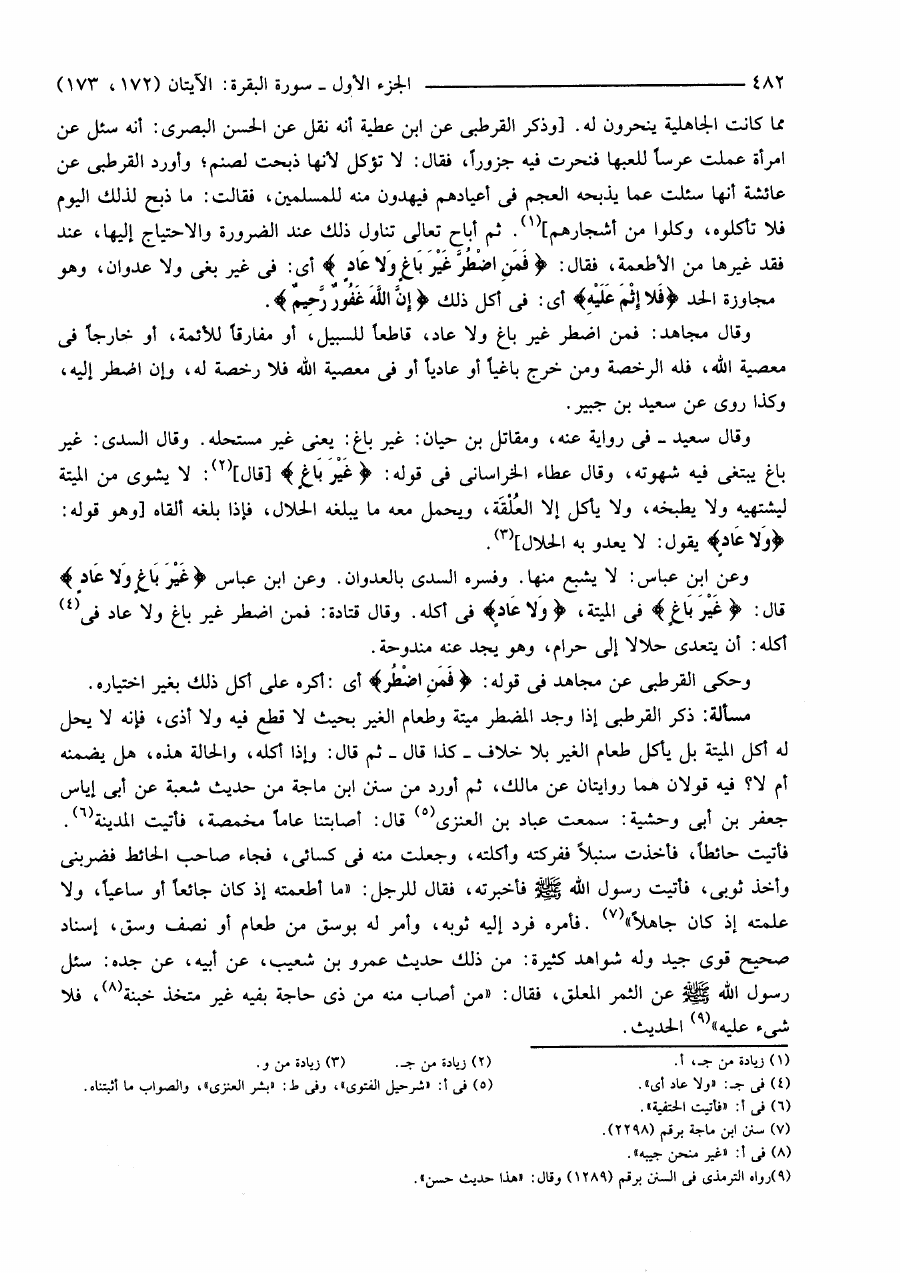 ٤٨٢ ـــــــــــــــــ الجزء الأول ـ سورة البقرة: الآيتان (١٧٢، ١٧٣)
مما كانت الجاهلية ينحرون له. [وذكر القرطبى عن ابن عطية أنه نقل عن الحسن البصرى: أنه سئل عن
امرأة عملت عرساً للعبها فنحرت فيه جزوراً، فقال: لا تؤكل لأنها ذبحت لصنم؛ وأورد القرطبى عن
عائشة أنها سئلت عما يذبحه العجم فى أعيادهم فيهدون منه للمسلمين، فقالت: ما ذبح لذلك اليوم
فلا تأكلوه، وكلوا من أشجارهم](١). ثم أباح تعالى تناول ذلك عند الضرورة والاحتياج إليها، عند
فقد غيرها من الأطعمة، فقال: ﴿ فَمَنِ اضْطُرَّ غَيْرَ بَاغٍ وَلا عَادٍ ﴾ أى: فى غير بغى ولا عدوان، وهو
مجاوزة الحد ﴿فَلا إِثْمَ عَلَيْهِ﴾ أى: فى أكل ذلك ﴿إِنَّ اللَّهَ غَفُورٌ رَّحِيمٌ ﴾.
وقال مجاهد: فمن اضطر غير باغ ولا عاد، قاطعاً للسبيل، أو مفارقاً للأئمة، أو خارجاً فى
معصية الله، فله الرخصة ومن خرج باغياً أو عادياً أو فى معصية الله فلا رخصة له، وإن اضطر إليه،
وكذا روى عن سعيد بن جبير.
وقال سعيد ـ فى رواية عنه، ومقاتل بن حيان: غير باغ: يعنى غير مستحله. وقال السدى: غير
باغ يبتغى فيه شهوته، وقال عطاء الخراسانى فى قوله: ﴿ غَيْرَ بَاغٍ ﴾ [قال](٢): لا يشوى من الميتة
ليشتهيه ولا يطبخه، ولا يأكل إلا العُلْقَة، ويحمل معه ما يبلغه الحلال، فإذا بلغه ألقاه [وهو قوله:
﴿وَلا عَادٍ﴾ يقول: لا يعدو به الحلال](٣).
وعن ابن عباس: لا يشبع منها. وفسره السدى بالعدوان. وعن ابن عباس ﴿غَيْرَ بَاغٍ وَلا عَادٍ ﴾
قال: ﴿ غَيْرَ بَاغٍ ﴾ فى الميتة، ﴿ وَلا عَادٍ﴾ فى أكله. وقال قتادة: فمن اضطر غير باغ ولا عاد فى(٤)
أكله: أن يتعدى حلالا إلى حرام، وهو يجد عنه مندوحة.
وحكى القرطبى عن مجاهد فى قوله: ﴿ فَمَنِ اضْطُر﴾ أى :أكره على أكل ذلك بغير اختياره.
مسألة: ذكر القرطبى إذا وجد المضطر ميتة وطعام الغير بحيث لا قطع فيه ولا أذى، فإنه لا يحل
له أكل الميتة بل يأكل طعام الغير بلا خلاف ـ كذا قال ـ ثم قال: وإذا أكله، والحالة هذه، هل يضمنه
أم لا؟ فيه قولان هما روايتان عن مالك، ثم أورد من سنن ابن ماجة من حديث شعبة عن أبى إياس
جعفر بن أبى وحشية: سمعت عباد بن العنزى(٥) قال: أصابتنا عاماً مخمصة، فأتيت المدينة(٦).
فأتيت حائطاً، فأخذت سنبلاً ففركته وأكلته، وجعلت منه فى كسائى، فجاء صاحب الحائط فضربنى
وأخذ ثوبى، فأتيت رسول الله ﷺ فأخبرته، فقال للرجل: «ما أطعمته إذ كان جائعاً أو ساعياً، ولا
علمته إذ كان جاهلاً»(٧) .فأمره فرد إليه ثوبه، وأمر له بوسق من طعام أو نصف وسق، إسناد
صحيح قوى جيد وله شواهد كثيرة: من ذلك حديث عمرو بن شعيب، عن أبيه، عن جده: سئل
رسول الله ﷺ عن الثمر المعلق، فقال: «من أصاب منه من ذى حاجة بفيه غير متخذ خبنة(٨)، فلا
شىء عليه»(٩) الحديث.
(١) زيادة من جـ، أ. (٢) زيادة من جـ. (٣) زيادة من و.
(٤) فى جـ: «ولا عاد أى». (٥) فى أ: «شرحيل الفتوى»، وفى ط: «بشر العنزى»، والصواب ما أثبتناه.
(٦) فى أ: «فأتيت الحتفية».
(٧) سنن ابن ماجة برقم (٢٢٩٨).
(٨) فى أ: «غير منحن جيبه».
(٩)رواه الترمذى فى السنن برقم (١٢٨٩) وقال: «هذا حديث حسن».